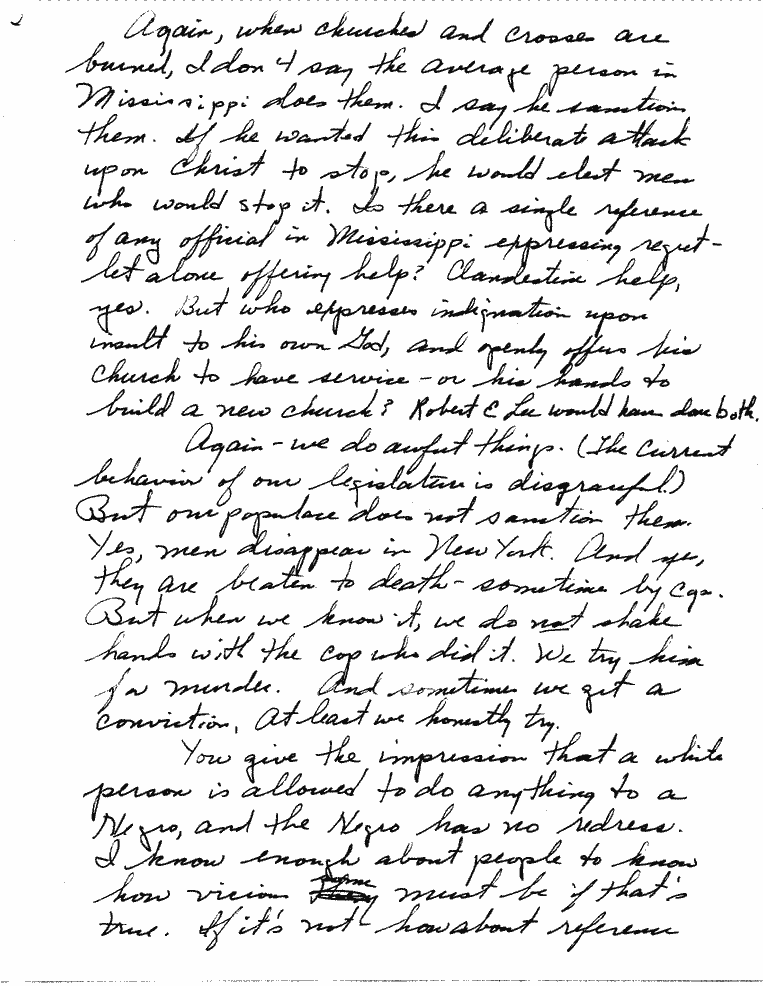 Again, when churches and crosses are
burned, I don't say the average person in
Mississippi does them. I say he sanctions
them. If he wanted this deliberate attack
upon Christ to stop, he would elect men
who would stop it. Is there a single reference
of any official in Mississippi expressing regret -
let alone offering help? Clandestine help,
yes. But who expresses indignation upon
insult to his own God, and openly offers his
church to have service - or his hands to
build a new church? Robert E Lee would have done both.
Again - we do awful things. (The current
behavior of our legislature is disgraceful.)
But our populace does not sanction them.
Yes, men disappear in New York. And yes,
they are beaten to death - sometime by cops.
But when we know it, we do not shake
hands with the cop who did it. We try him
for murder. And sometimes we get a
conviction. At least we honestly try.
You give the impression that a white
person is allowed to do anything to a
Negro, and the Negro has no redress.
I know enough about people to know
how vicious some must be if that's
true. If it's not - how about reference